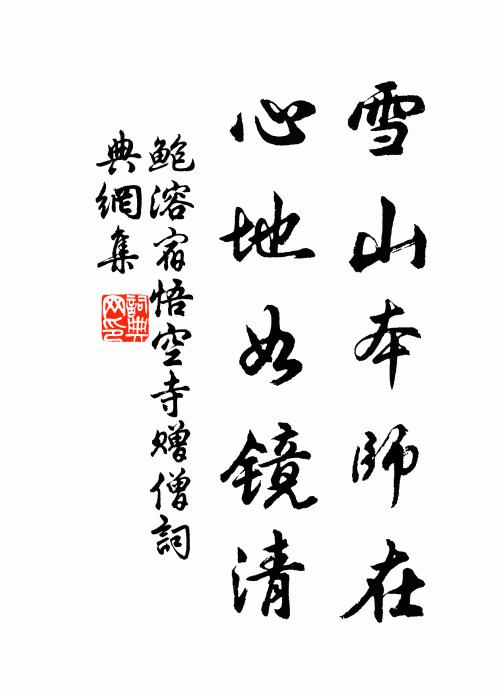 雪山本師在
心地如鏡清
鮑溶宿悟空寺赠僧詞
典網集
詞典网印